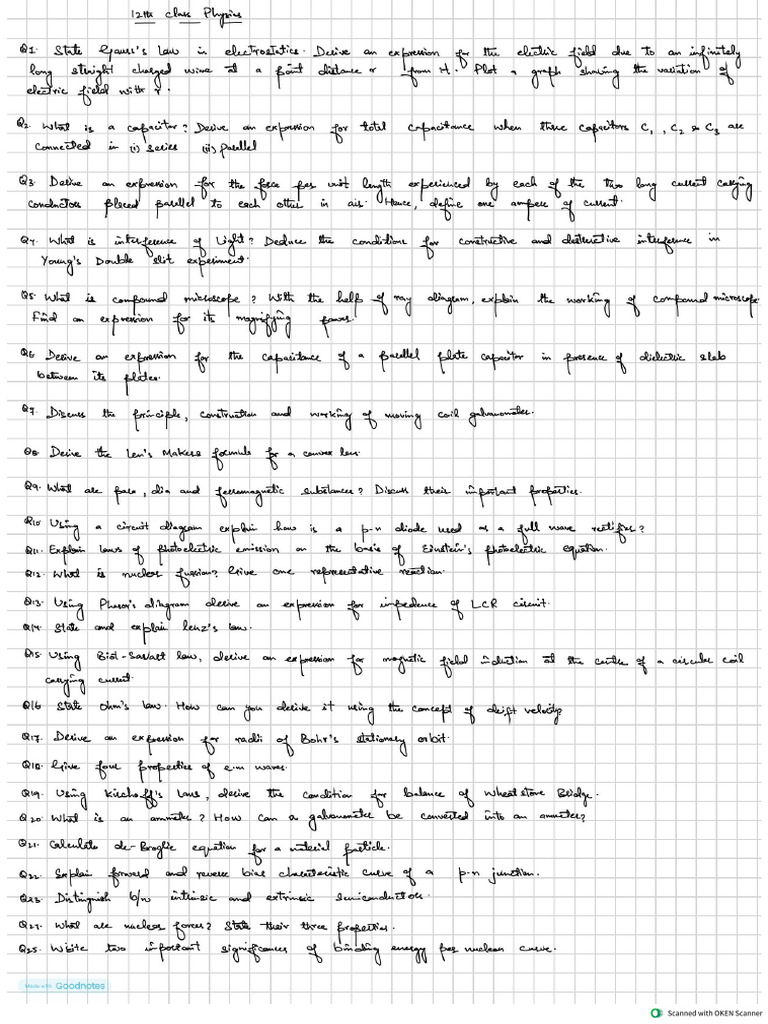 12th class Physics
Q1. State Gauss's Law in electrostatics. Derive an expression for the electric field due to an infinitely
long straight charged wire at a point distance r from it. Plot a graph showing the variation of
electric field with r.
Q2. What is a capacitor? Derive an expression for total capacitance when three capacitors C1, C2 & C3 are
connected in (i) series (ii) parallel
Q3. Derive an expression for the force per unit length experienced by each of the two long current carrying
conductors placed parallel to each other in air. Hence, define one ampere of current.
Q4. What is interference of light? Deduce the conditions for constructive and destructive interference in
Young's Double slit experiment.
Q5. What is compound microscope? With the help of ray diagram, explain the working of compound microscope.
Find an expression for its magnifying power.
Q6 Derive an expression for the capacitance of a parallel plate capacitor in presence of dielectric slab
between its plates.
Q7. Discuss the principle, construction and working of moving coil galvanometer.
Q8. Derive the Len's Makers formula for a convex lens.
Q9. What are para, dia and ferromagnetic substances? Discuss their important properties.
Q10. Using a circuit diagram explain how is a p-n diode used as a full wave rectifier?
Q11. Explain laws of photoelectric emission on the basis of Einstein's photoelectric equation.
Q12. What is nuclear fussion? Give one representative reaction.
Q13. Using Phasor's diagram derive an expression for impedence of LCR circuit.
Q14. State and explain lenz's law.
Q15. Using Biot-Savart law, derive an expression for magnetic field induction at the centre of a circular coil
carrying current.
Q16 State Ohm's law. How can you derive it using the concept of drift velocity
Q17. Derive an expression for radii of Bohr's stationary orbit.
Q18. Give four properties of e.m waves.
Q19. Using Kirchoff's laws, derive the condition for balance of Wheatstone Bridge.
Q20. What is an ammeter? How can a galvanometer be converted into an ammeter?
Q21. Calculate de-Broglie equation for a material particle.
Q22. Explain forward and reverse bias characteristic curve of a p-n junction.
Q23. Distinguish b/w intrinsic and extrinsic semiconductors.
Q24. What are nuclear forces? State their three properties.
Q25. Write two important significances of binding energy per nucleon curve.
Made with Goodnotes
Scanned with OKEN Scanner